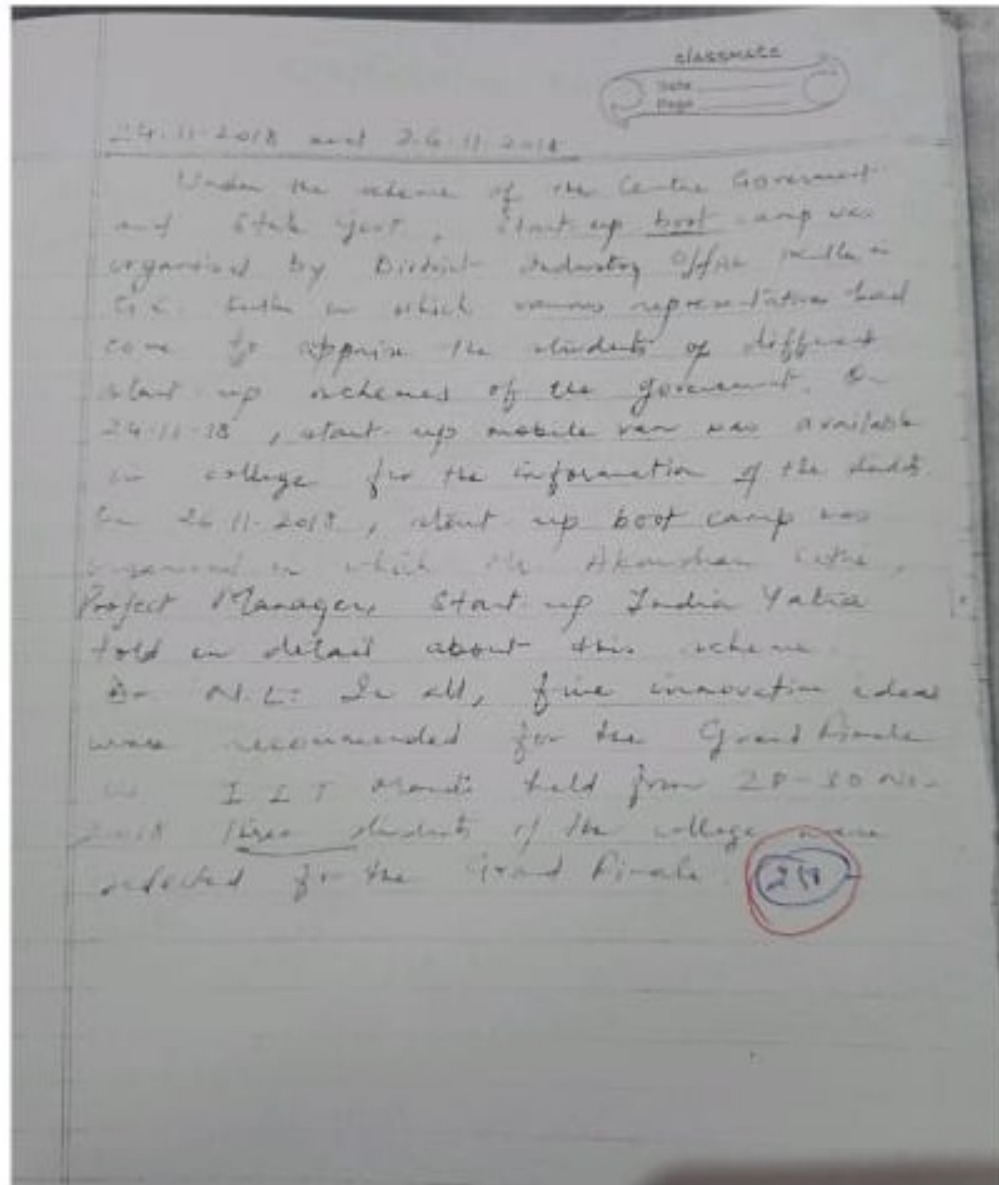 classmate
Date
Page
24.11.2018 and 26.11.2018
Under the scheme of the Centre Goverment
and State Govt., Start-up boot camp was
organised by District Industry Office
G.C. in which various representatives had
come to apprise the students of different
start up schemes of the Government. On
24.11.18, start-up mobile van was available
in college for the information of the
On 26.11.2018, start up boot camp was
organised in which Mr.
Project Manager, Start-up India Yatra
told in detail about this scheme
In all, five innovative ideas
were recommended for the Grand Finale
in IIT Mandi held from 28-30
2018 three students of the college were
selected for the Grand Finale